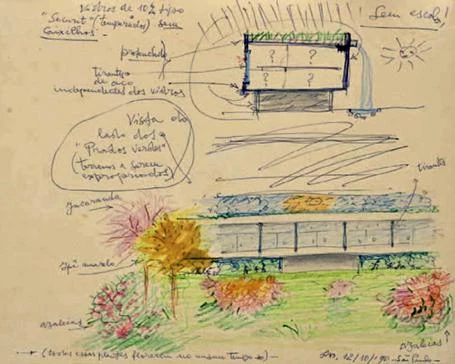 Vidros de 10% tipo
"Securit" (temperados) sem
Caixilhos -
Sem escala!
profundid.
tirantes
de aço
independentes dos vidros
? ?
? ?
Vista do
lado dos
"Prados verdes"
(terrenos a serem
expropriados)
tirante
Jacarandá
Ipê amarelo
azaleias
azaleias
(todas essas plantas florescem no mesmo tempo)
12/10/90 - São Paulo -